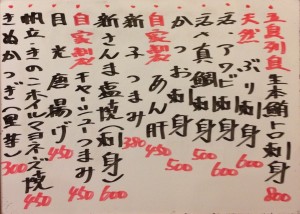 五島列島 生本鮪トロ刺身 800
天然 ぶり刺身 600
活〆アワビ刺身 600
活〆真鯛刺身 500
かつお刺身 500
自家製 あん肝 450
新子つまみ 380
新さんま塩焼(刺身) 600
自家製チャーシューつまみ 450
目光唐揚げ 450
帆立きのこホイルマヨネーズ焼 450
きぬかつぎ(里芋) 300